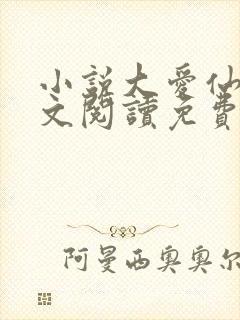 小説大愛仙
文閱讀免費
阿曼西奧奧尔